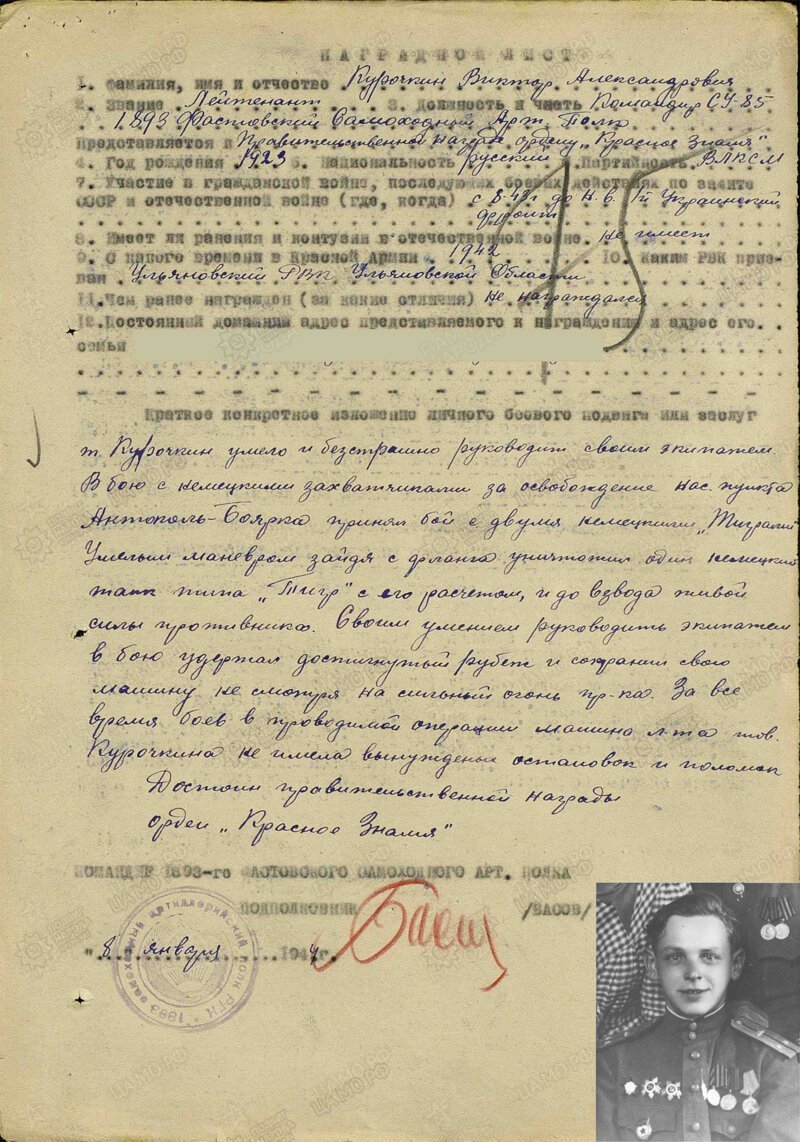 НАГРАДНОЙ ЛИСТ
1. Фамилия, имя и отчество Курочкин Виктор Александрович
2. Звание Лейтенант 3. Должность и часть Командир СУ-85
1893 Фастовский Самоходный Арт. Полк
Представляется к Правительственной награде ордену „Красное Знамя"
4. Год рождения 1923 5. Национальность русский 6. Партийность ВЛКСМ
7. Участие в гражданской войне, последующих боевых действиях по защите
СССР и отечественной войне (где, когда) с 8.43г. до н.в. 1й Украинский
фронт
8. Имеет ли ранения и контузии в отечественной войне. не имеет
9. С какого времени в Красной Армии 1942 10. Каким РВК приз-
ван Ульяновский РВК Ульяновской Области
11. Чем ранее награжден (за какие отличия) не награждался
12. Постоянный домашний адрес представляемого к награждению и адрес его
семьи
15
Краткое конкретное изложение личного боевого подвига или заслуг
т. Курочкин умело и безстрашно руководит своим экипажем.
В бою с немецкими захватчиками за освобождение нас. пункта
Антополь-Боярка принял бой с двумя немецкими „Тиграми"
Умелым маневром зайдя с фланга уничтожил один немецкий
танк типа „Тигр" с его расчетом, и до взвода живой
силы противника. Своим умением руководить экипажем
в бою удержал достигнутый рубеж и сохранил свою
машину не смотря на сильный огонь пр-ка. За все
время боев в проводимой операции машина л-та тов.
Курочкина не имела вынужденых остановок и поломок
Достоин правительственной награды
орден „Красное Знамя"
КОМАНДИР 1893-го ФАСТОВСКОГО САМОХОДНОГО АРТ. ПОЛКА
ПОДПОЛКОВНИК Басов /БАСОВ/
"8" января 1944г.
1893 самоходный артиллерийский полк РГК
ЦАМО РФ